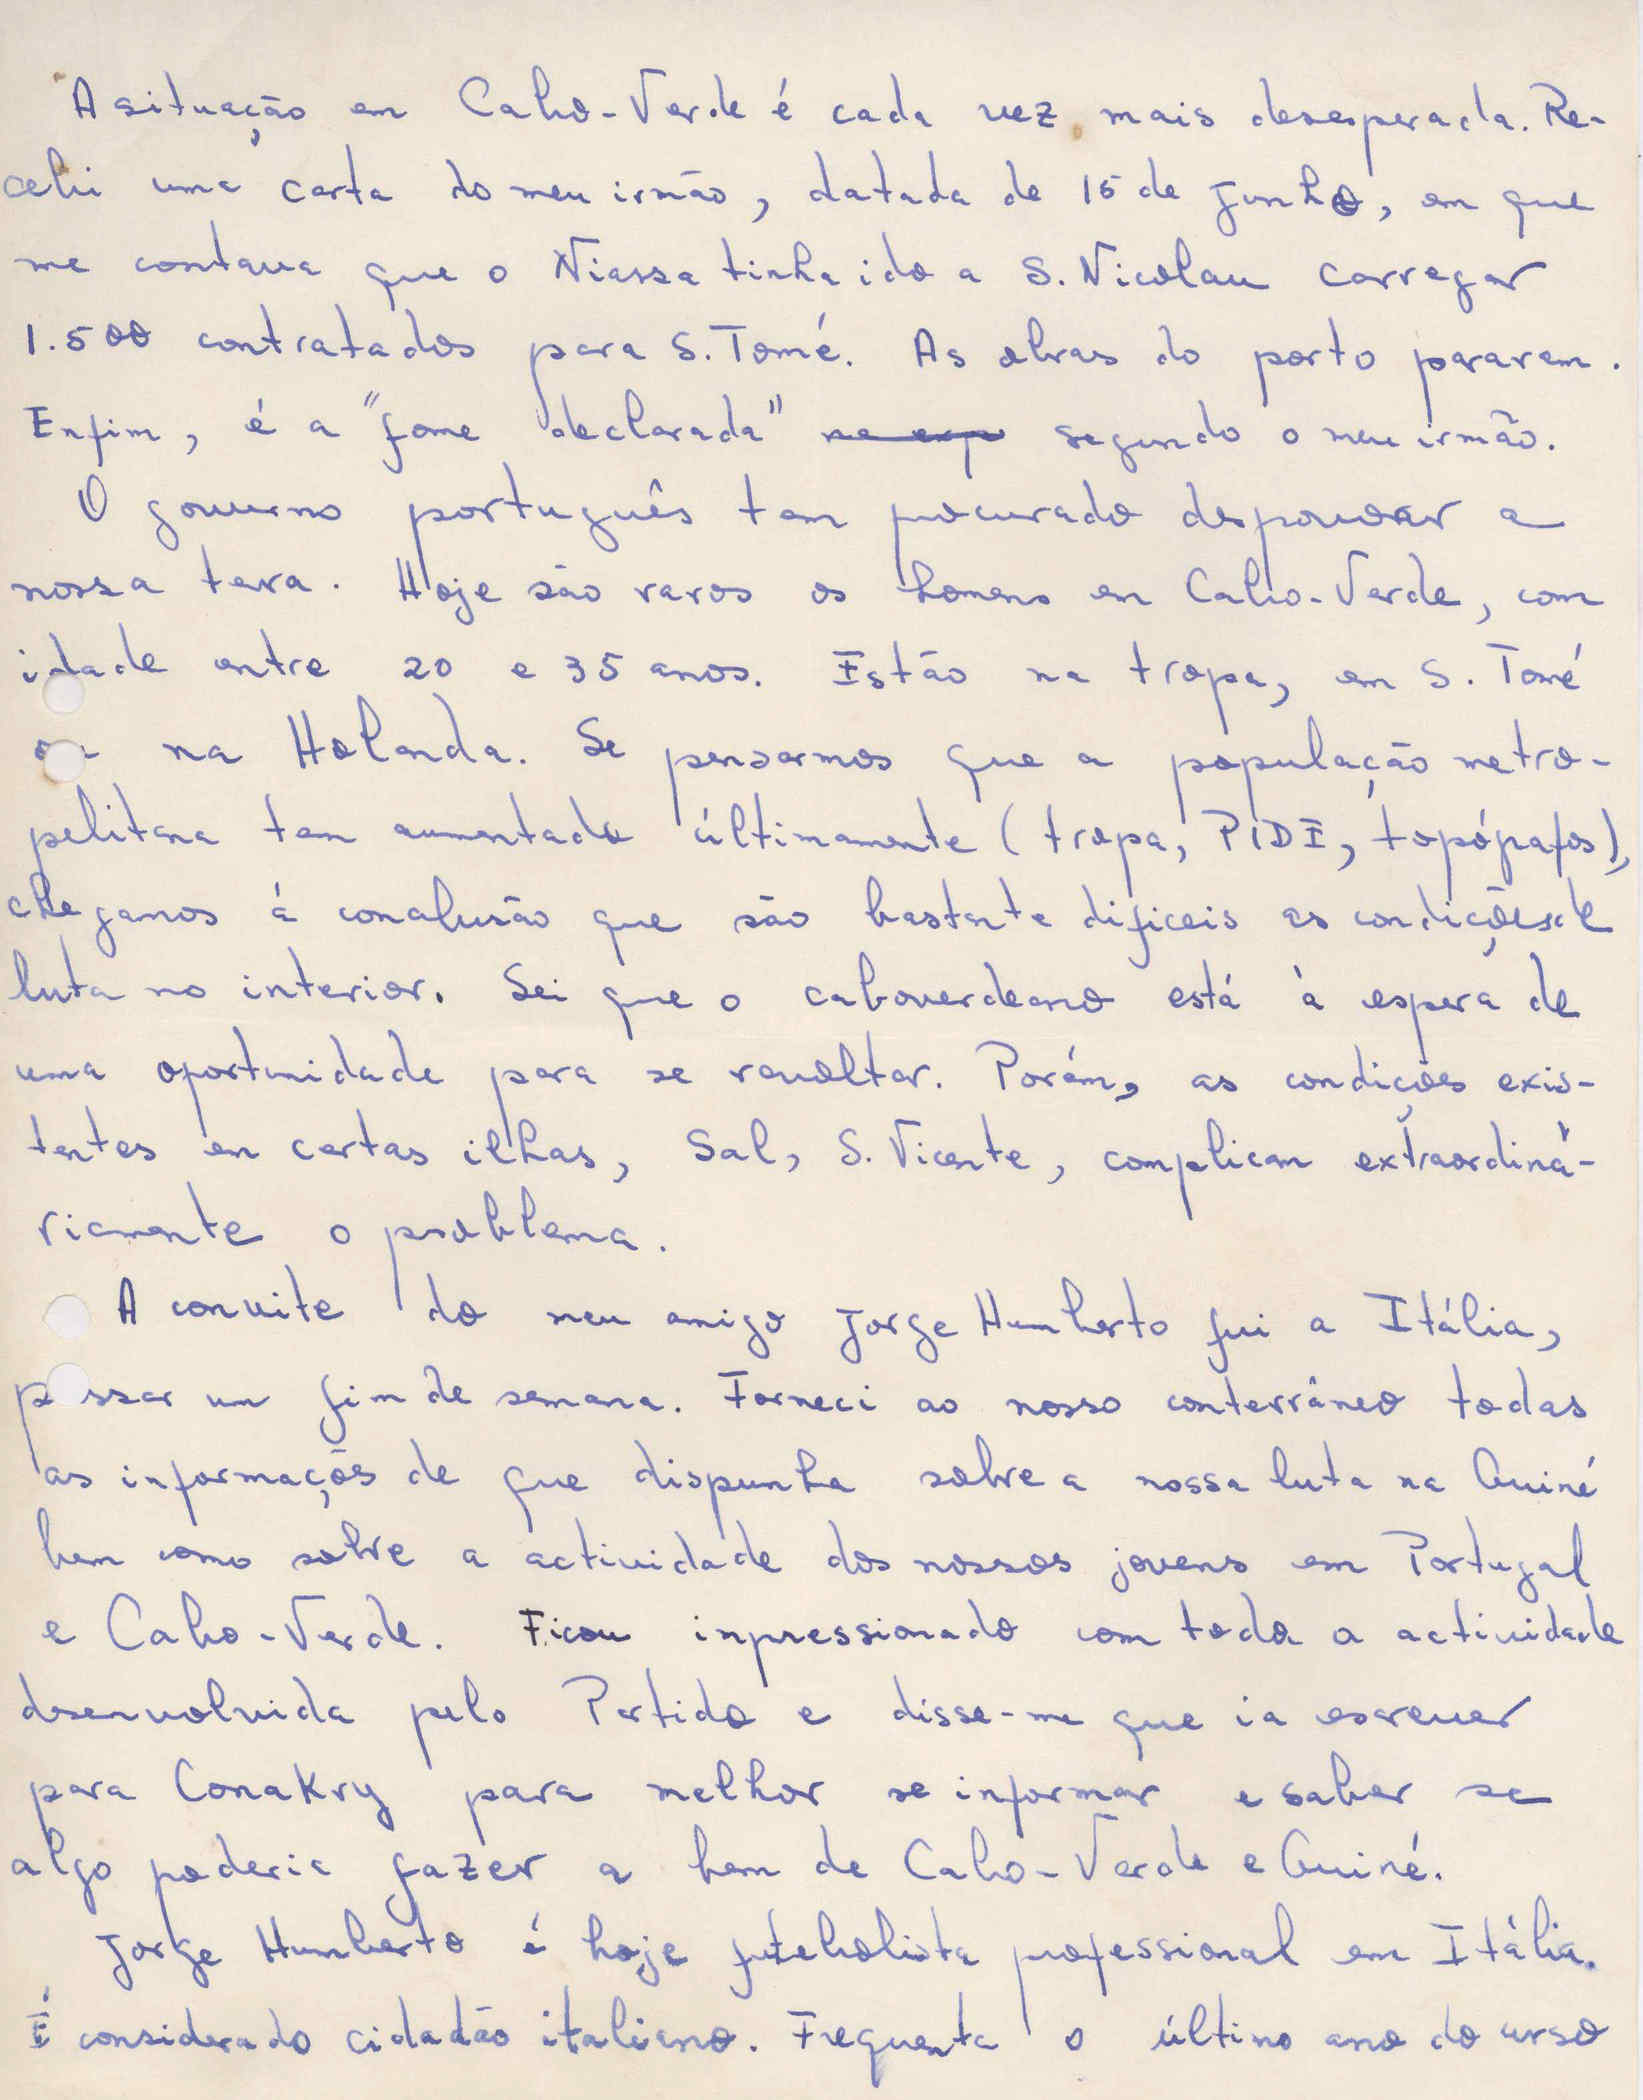 A situação em Cabo-Verde é cada vez mais desesperada. Re-
cebi uma carta do meu irmão, datada de 15 de junho, em que
me contava que o Niassa tinha ido a S. Nicolau carregar
1.500 contratados para S. Tomé. As obras do porto pararam.
Enfim, é a "fome declarada" segundo o meu irmão.
O governo português tem procurado despovoar a
nossa terra. Hoje são raros os homens em Cabo-Verde, com
idade entre 20 e 35 anos. Estão na tropa, em S. Tomé
ou na Holanda. Se pensarmos que a população metro-
politana tem aumentado últimamente (tropa, PIDE, topógrafos),
chegamos á conclusão que são bastante dificeis as condições de
luta no interior. Sei que o caboverdeano está à espera de
uma oportunidade para se revoltar. Porém, as condições exis-
tentes em certas ilhas, Sal, S. Vicente, complicam extraordiná-
riamente o problema.
A convite do meu amigo Jorge Humberto fui a Itália,
passar um fim de semana. Forneci ao nosso conterrâneo todas
as informações de que dispunha sobre a nossa luta na Guiné
bem como sobre a actividade dos nossos jovens em Portugal
e Cabo-Verde. Ficou inpressionado com toda a actividade
desenvolvida pelo Partido e disse-me que ia escrever
para Conakry para melhor se informar e saber se
algo poderia fazer a bem de Cabo-Verde e Guiné.
Jorge Humberto é hoje futebolista professional em Itália.
É considerado cidadão italiano. Frequenta o último ano do curso